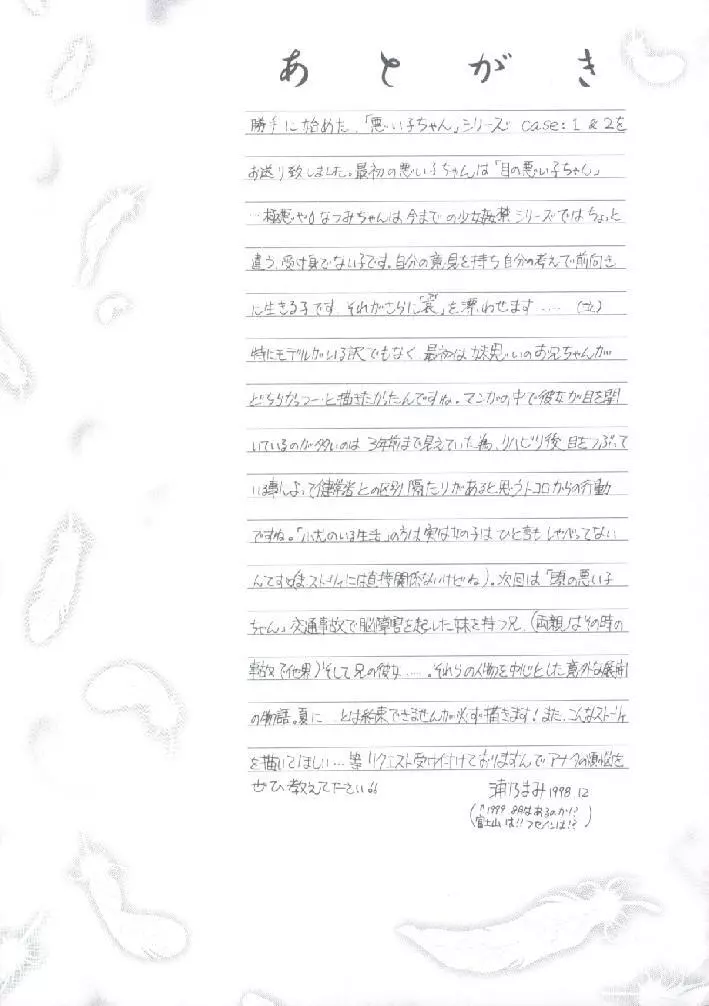 あとがき
勝手に始めた、「悪い子ちゃん」シリーズ case: 1 & 2を
お送り致しました。最初の悪い子ちゃんは「目の悪い子ちゃん」
なつみちゃんは今までの少女 シリーズではちょっと
違う、受け身でない子です。自分の意見を持ち自分の考えで前向き
に生きる子です。それがさらに「哀」を漂わせます……
特にモデルがいる訳でもなく 最初は妹思いのお兄ちゃんが
と描きたかったんですね。マンガの中で彼女が目を開
いているのが多いのは 3年前まで見えていた為、リハビリ後 目をつぶって
いる事によって健常者との区別 隔たりがあると思うトコロからの行動
ですね。「 のいる生活」の方は実は女の子は ひと言も しゃべってない
んです(まぁストーリィには直接関係ないけどね)。次回は「頭の悪い子
ちゃん」交通事故で脳障害を起こした妹を持つ兄、(両親はその時の
事故で他界)そして兄の彼女……。それらの人物を中心とした意外な展開
の物語。夏に…とは約束できませんが必ず描きます!また、こんなストーリィ
を描いてほしい…等 リクエスト受け付けておりますんで アナタの を
ぜひ教えてください
1998.12
(↑1999 8月はあるのか!?
富士山は!! フセインは!?)